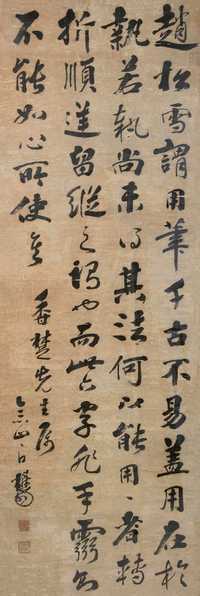 趙松雪謂用筆千古不易蓋用在於
執若執尚未得其法何以能用用者轉
折順逆留縱之謂也而此六字非手靈則
不能如心所使矣
香楚先生屬